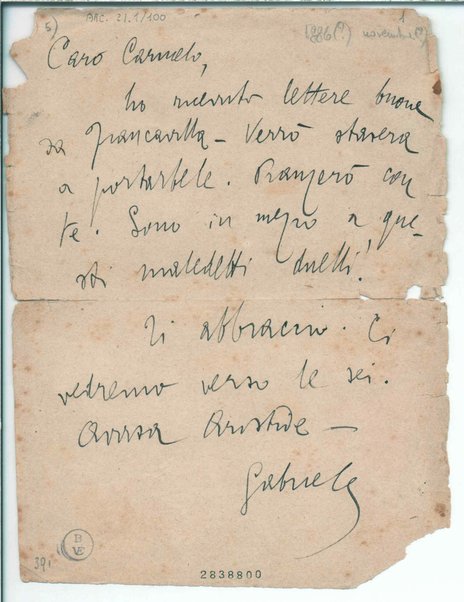 5)
ARC. 21.1/100
1
1886(?) novembre(?)
Caro Carmelo,
ho ricevuto lettere buone
da Francavilla – Verrò stasera
a portartele. Pranzerò con
te. Sono in mezzo a que-
sti maledetti duelli!
Ti abbraccio. Ci
vedremo verso le sei.
Avvisa Aristide –
Gabriele
39,
B
VE
2838800